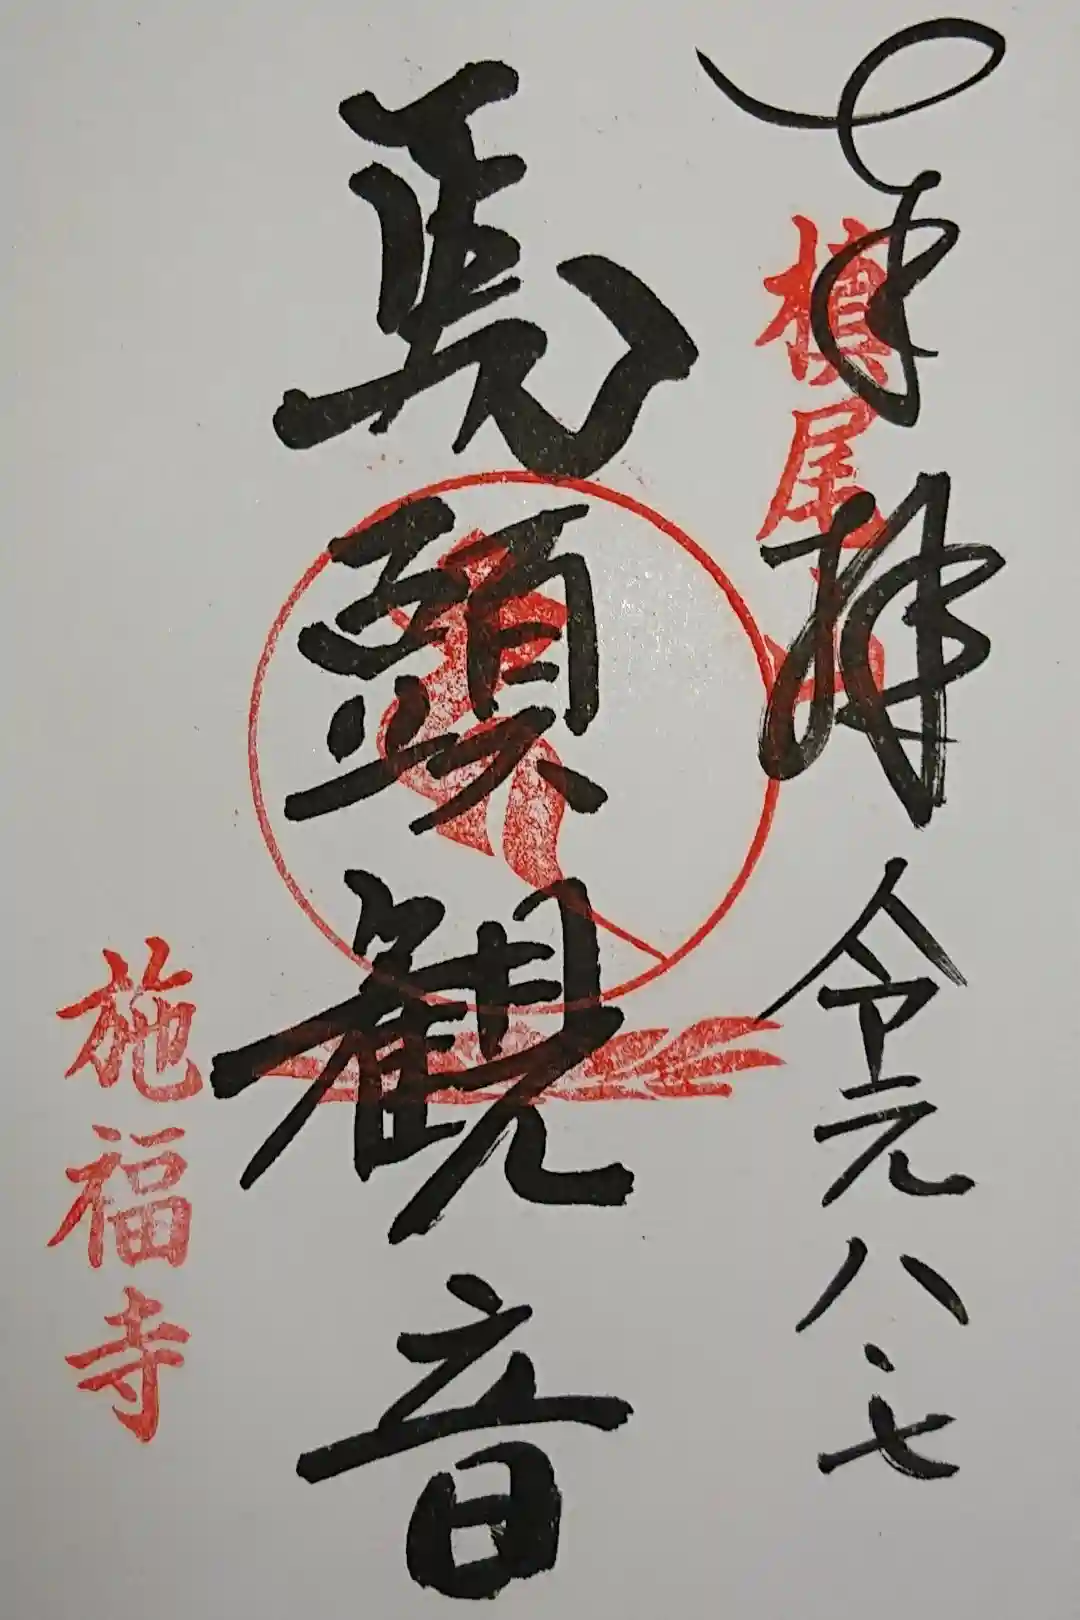 奉拝 令元 八・七
槙尾山
馬頭観音
施福寺